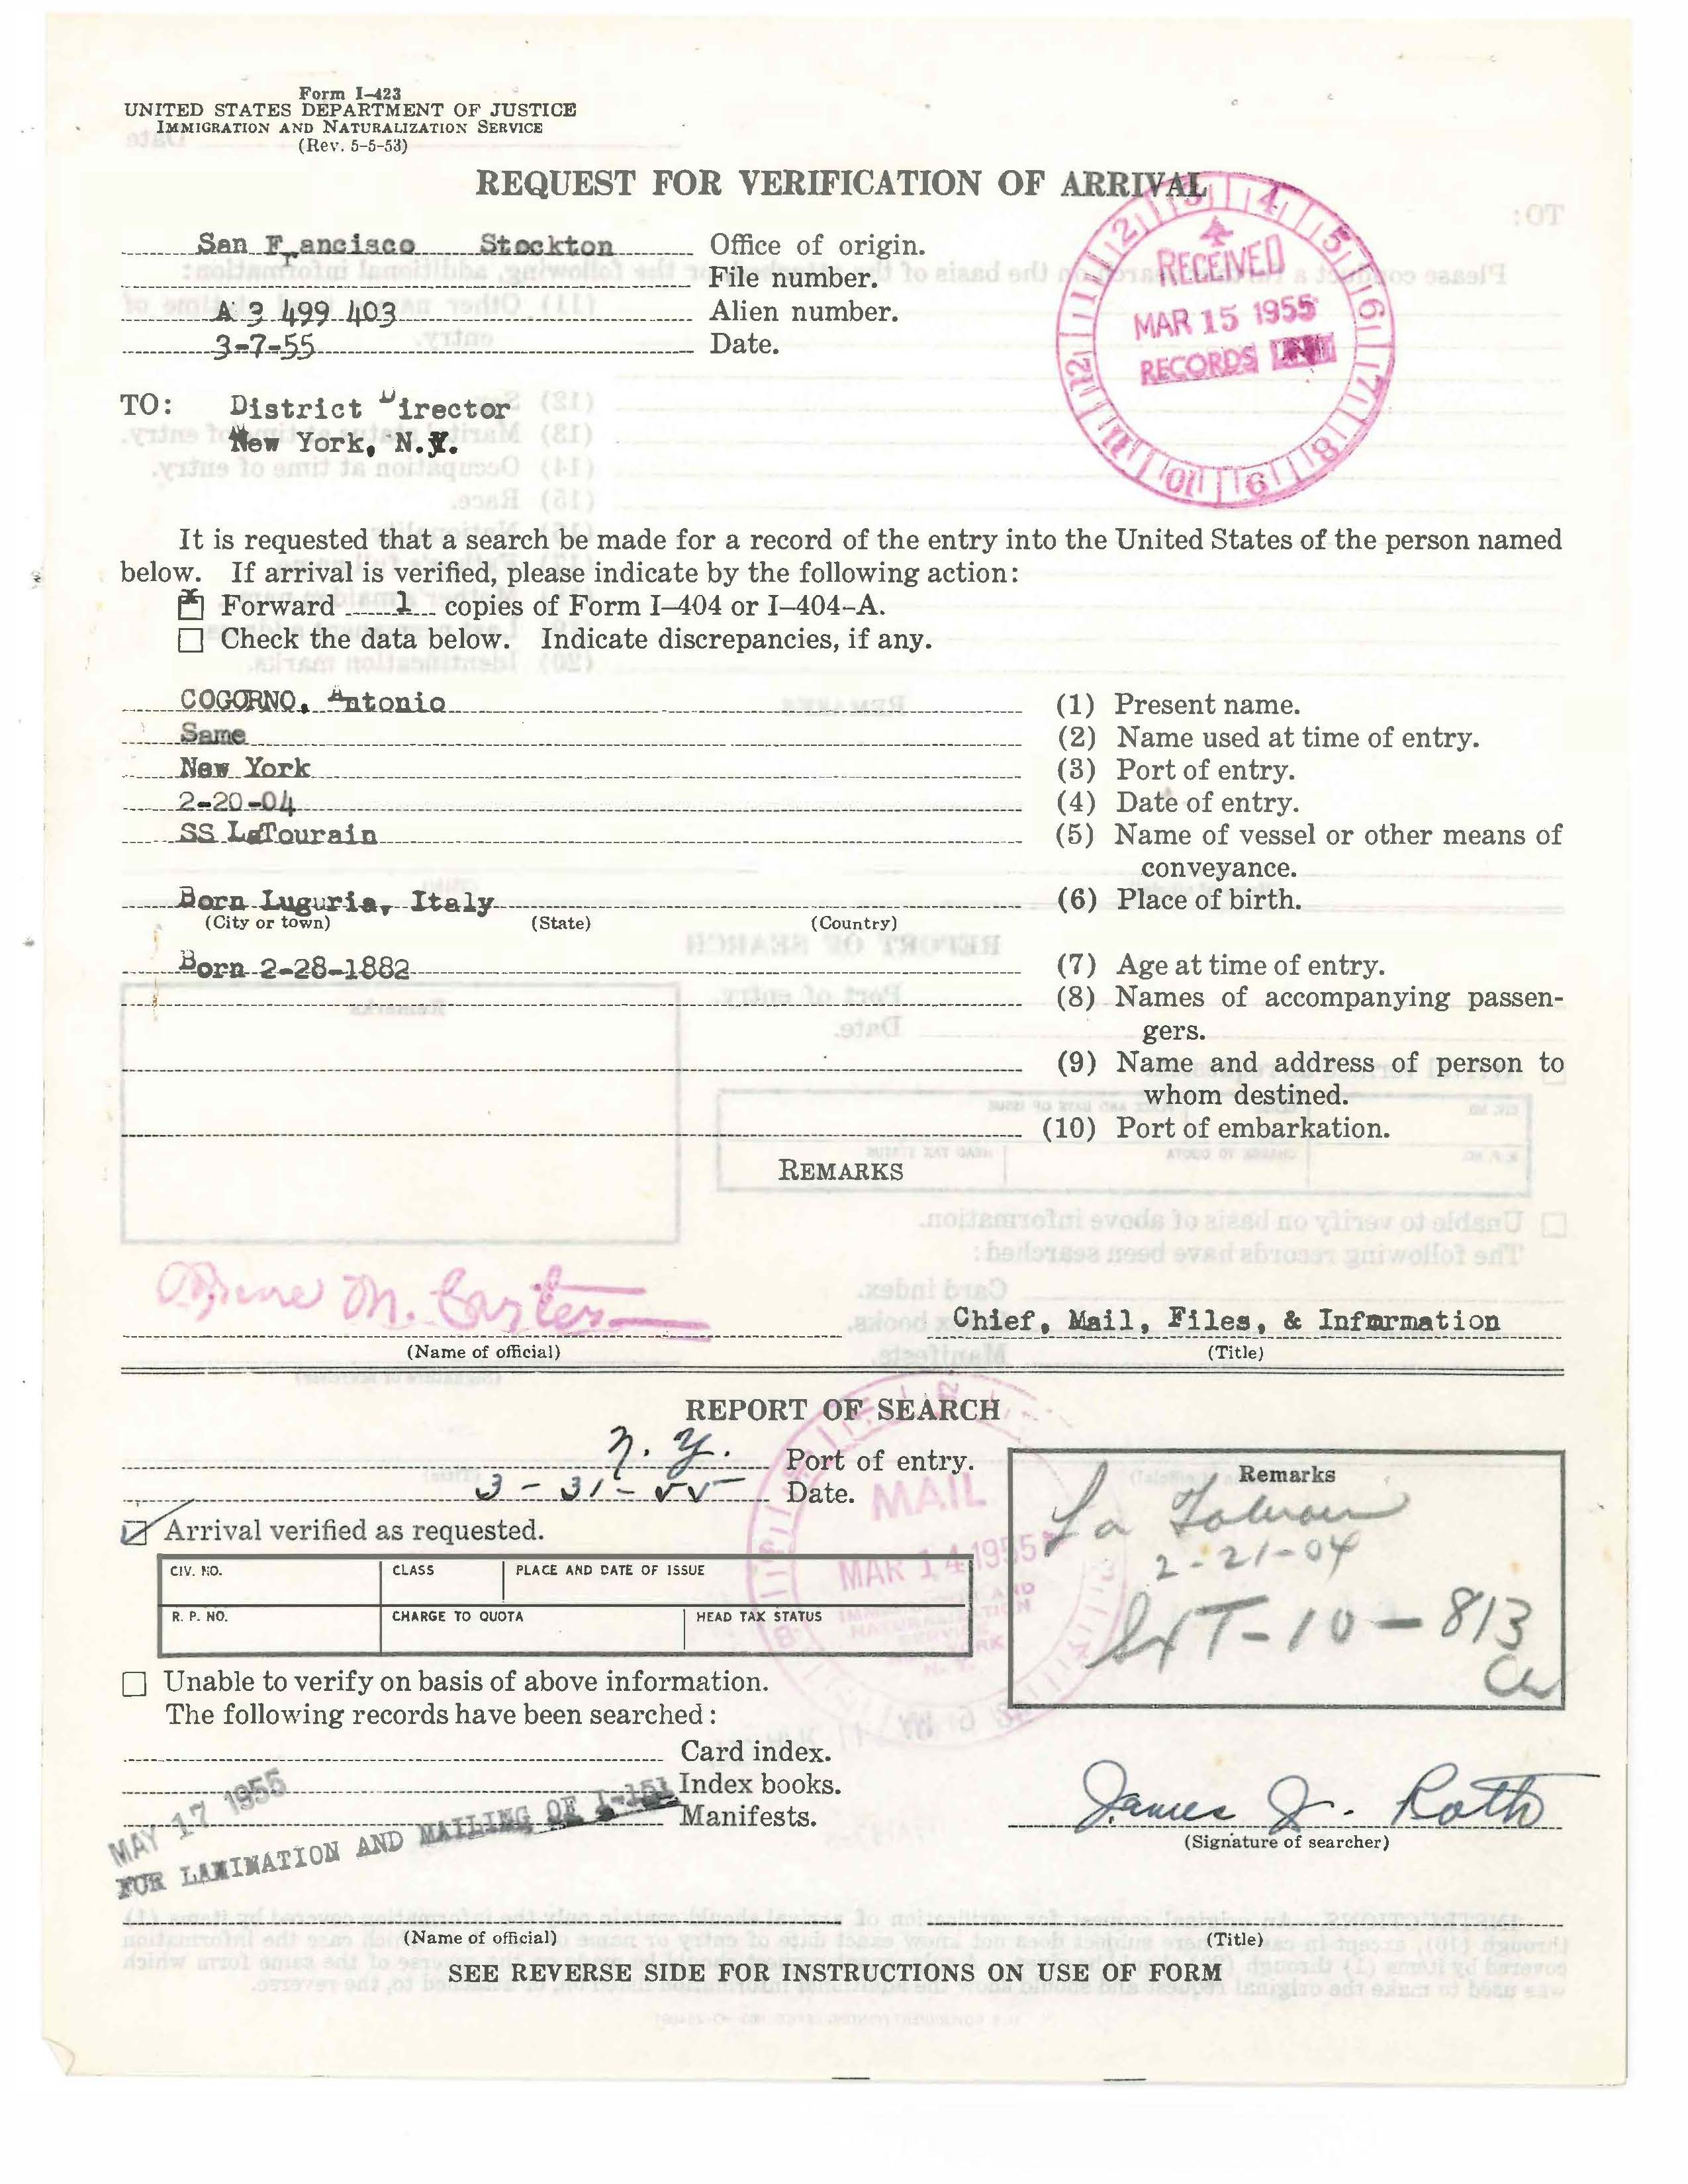 Form I-423
UNITED STATES DEPARTMENT OF JUSTICE
IMMIGRATION AND NATURALIZATION SERVICE
(Rev. 5-5-53)
REQUEST FOR VERIFICATION OF ARRIVAL
San Francisco Stockton Office of origin.
File number.
A 3 499 403 Alien number.
3-7-55 Date.
RECEIVED
MAR 15 1955
RECORDS
1 2 3 4 5 6 7 8 9 10 11 12
TO: District Director
New York, N.Y.
It is requested that a search be made for a record of the entry into the United States of the person named
below. If arrival is verified, please indicate by the following action:
☒ Forward 1 copies of Form I-404 or I-404-A.
☐ Check the data below. Indicate discrepancies, if any.
COGORNO, Antonio (1) Present name.
Same (2) Name used at time of entry.
New York (3) Port of entry.
2-20-04 (4) Date of entry.
SS LaTourain (5) Name of vessel or other means of
conveyance.
Born Luguria, Italy (6) Place of birth.
(City or town) (State) (Country)
Born 2-28-1882 (7) Age at time of entry.
(8) Names of accompanying passen-
gers.
(9) Name and address of person to
whom destined.
(10) Port of embarkation.
REMARKS
M. Carter
Chief, Mail, Files, & Information
(Name of official) (Title)
REPORT OF SEARCH
N. Y. Port of entry.
3-31-55 Date.
☑ Arrival verified as requested.
CIV. NO. CLASS PLACE AND DATE OF ISSUE
R. P. NO. CHARGE TO QUOTA HEAD TAX STATUS
MAIL
MAR 14 1955
IMMIGRATION AND
NATURALIZATION
SERVICE
N. Y.
Remarks
La
2-21-04
T-10-813
☐ Unable to verify on basis of above information.
The following records have been searched:
Card index.
Index books.
Manifests.
MAY 17 1955
FOR LAMINATION AND MAILING OF I-151
James J. Roth
(Signature of searcher)
(Name of official) (Title)
SEE REVERSE SIDE FOR INSTRUCTIONS ON USE OF FORM